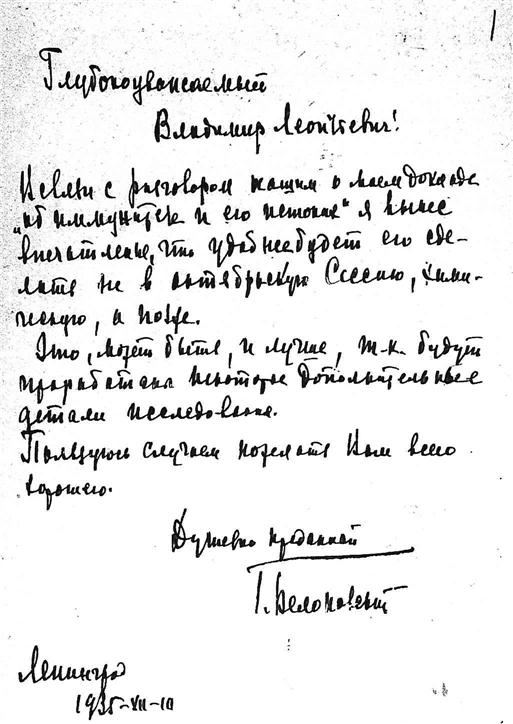 1
Глубокоуважаемый
Владимир Леонтьевич!
В связи с разговором нашим о моем докладе
"об иммунитете и его истоках" я вынес
впечатление, что удобнее будет его сде-
лать не в октябрьскую Сессию, хими-
ческую, а позже.
Это, может быть, и лучше, т.к. будут
проработаны некоторые дополнительные
детали исследования.
Пользуюсь случаем пожелать Вам всего
хорошего.
Душевно преданный
Г. Белоновский
Ленинград
1935-VII-10